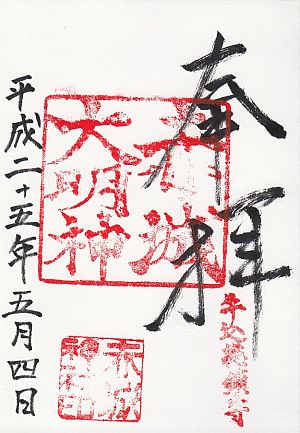 奉拝
牛込総鎮守
赤城
大明神
赤城
神社印
平成二十五年五月四日